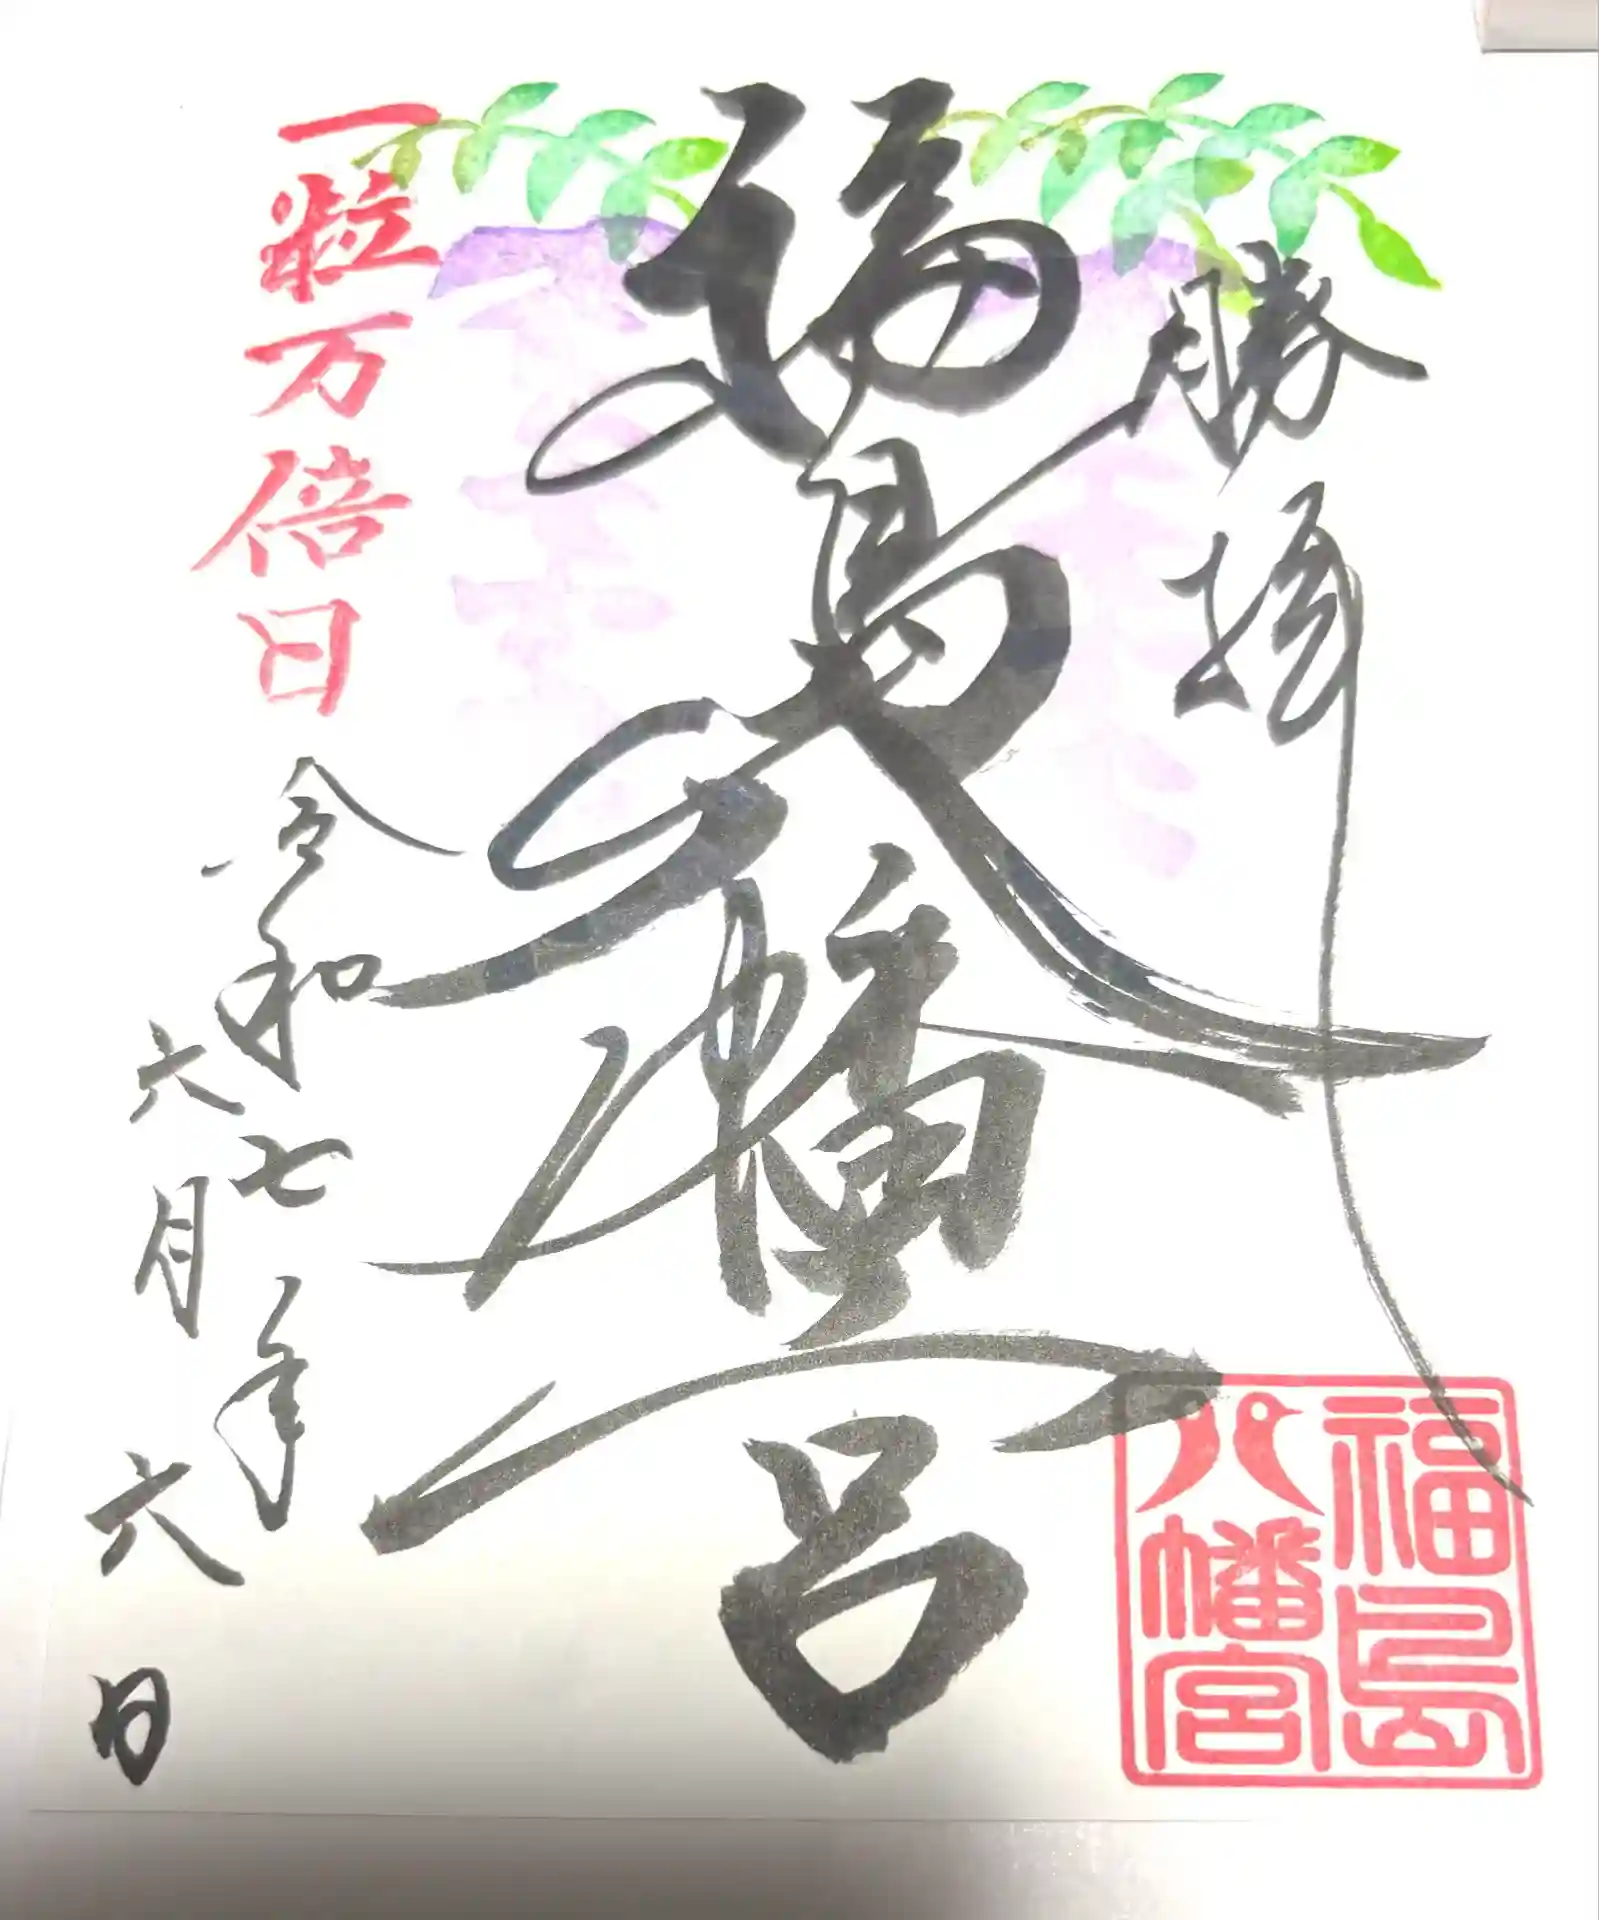 勝拝
福島八幡宮
福島
八幡宮
一粒万倍日
令和七年
六月六日